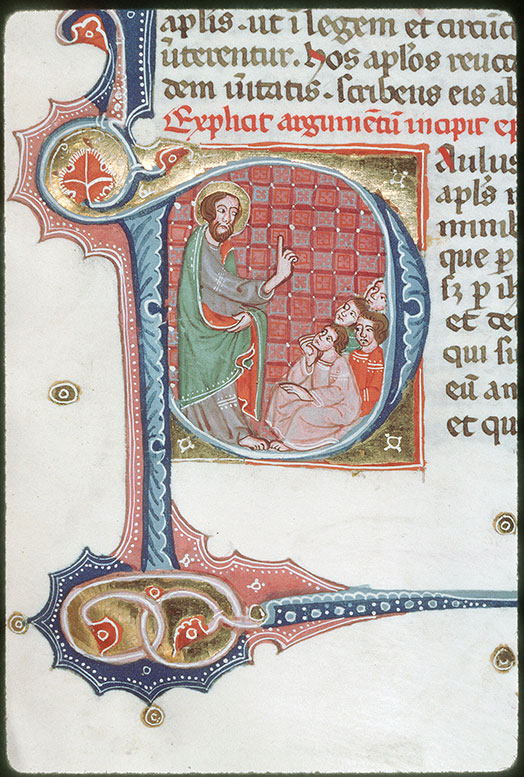 aplis · ut ī legem et circūc
ūterentur · hos aplos reuoca
dem ūitatis · scribens eis ab
Explicit argumētū incipit ep
Aulus
apls
minib
que p
sʒ p ih
et de
qui su
eū
et qu